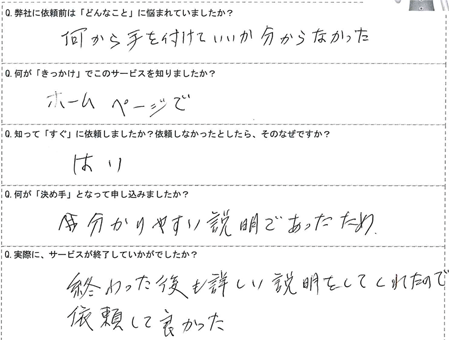 Q. 弊社に依頼前は「どんなこと」に悩まれていましたか？
何から手を付けていいか分からなかった
Q. 何が「きっかけ」でこのサービスを知りましたか？
ホームページで
Q. 知って「すぐ」に依頼しましたか？依頼しなかったとしたら、そのなぜですか？
はい
Q. 何が「決め手」となって申し込みましたか？
分かりやすい説明であったため.
Q. 実際に、サービスが終了していかがでしたか？
終わった後も詳しい説明をしてくれたので
依頼して良かった